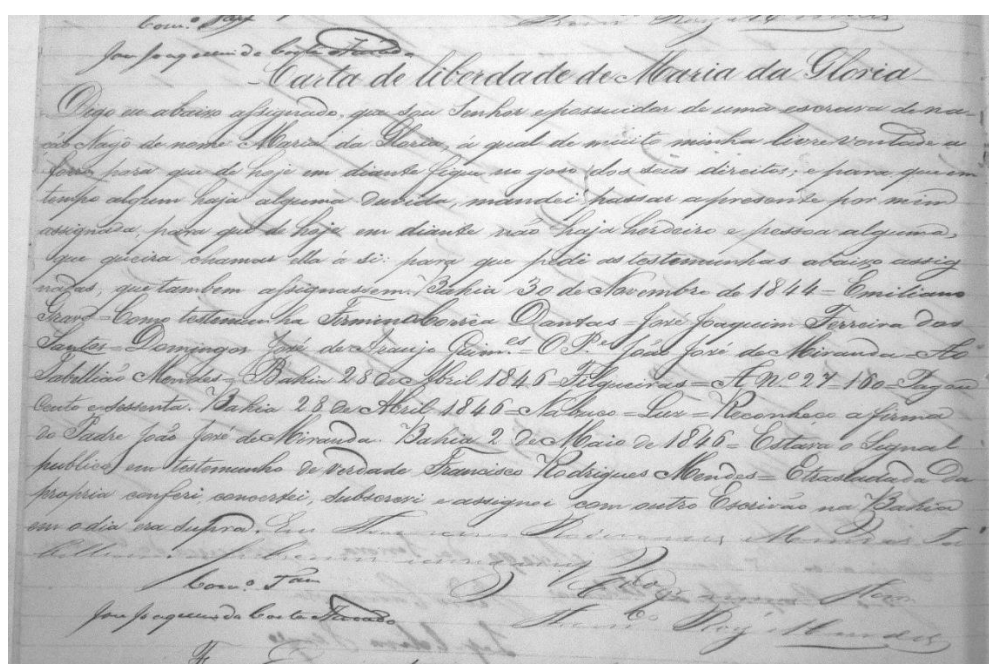 José Joaquim da Costa Amado
Carta de liberdade de Maria da Gloria
Digo eu abaixo assignado, que sou Senhor e possuidor de uma escrava de na-
ção Nagô de nome Maria da Gloria, á qual de muito minha livre vontade a
forro para que de hoje em diante fique no goso dos seus direitos; e para que em
tempo algum haja alguma duvida, mandei passar a presente por mim
assignada, para que de hoje em diante não haja herdeiro e pessoa alguma,
que queira chamar ella a si: para que pedi as testemunhas abaixo assig
nadas, que tambem assignassem. Bahia 30 de Novembro de 1844 = Emiliano
Gravó = Como testemunha Firmino Corrêa Dantas = José Joaquim Ferreira dos
Santos = Domingos José de Araujo Guim.es = O P.e João José de Miranda = Ao
Tabellião Mendes = Bahia 28 de Abril 1846 = Filgueiras = A N.o 27 = 160 = Pagou
cento e sessenta. Bahia 28 de Abril 1846 = Nabuco = Luz = Reconheço a firma
do Padre João José de Miranda. Bahia 2 de Maio de 1846 = Estava o Signal
publico) em testemunho de verdade Francisco Rodrigues Mendes = E trasladada da
propria conferi, concertei, subscrevi e assignei com outro Escrivão na Bahia
em o dia era supra. Eu Francisco Rodrigues Mendes Ta
Com.o
José Joaquim da Costa Amado